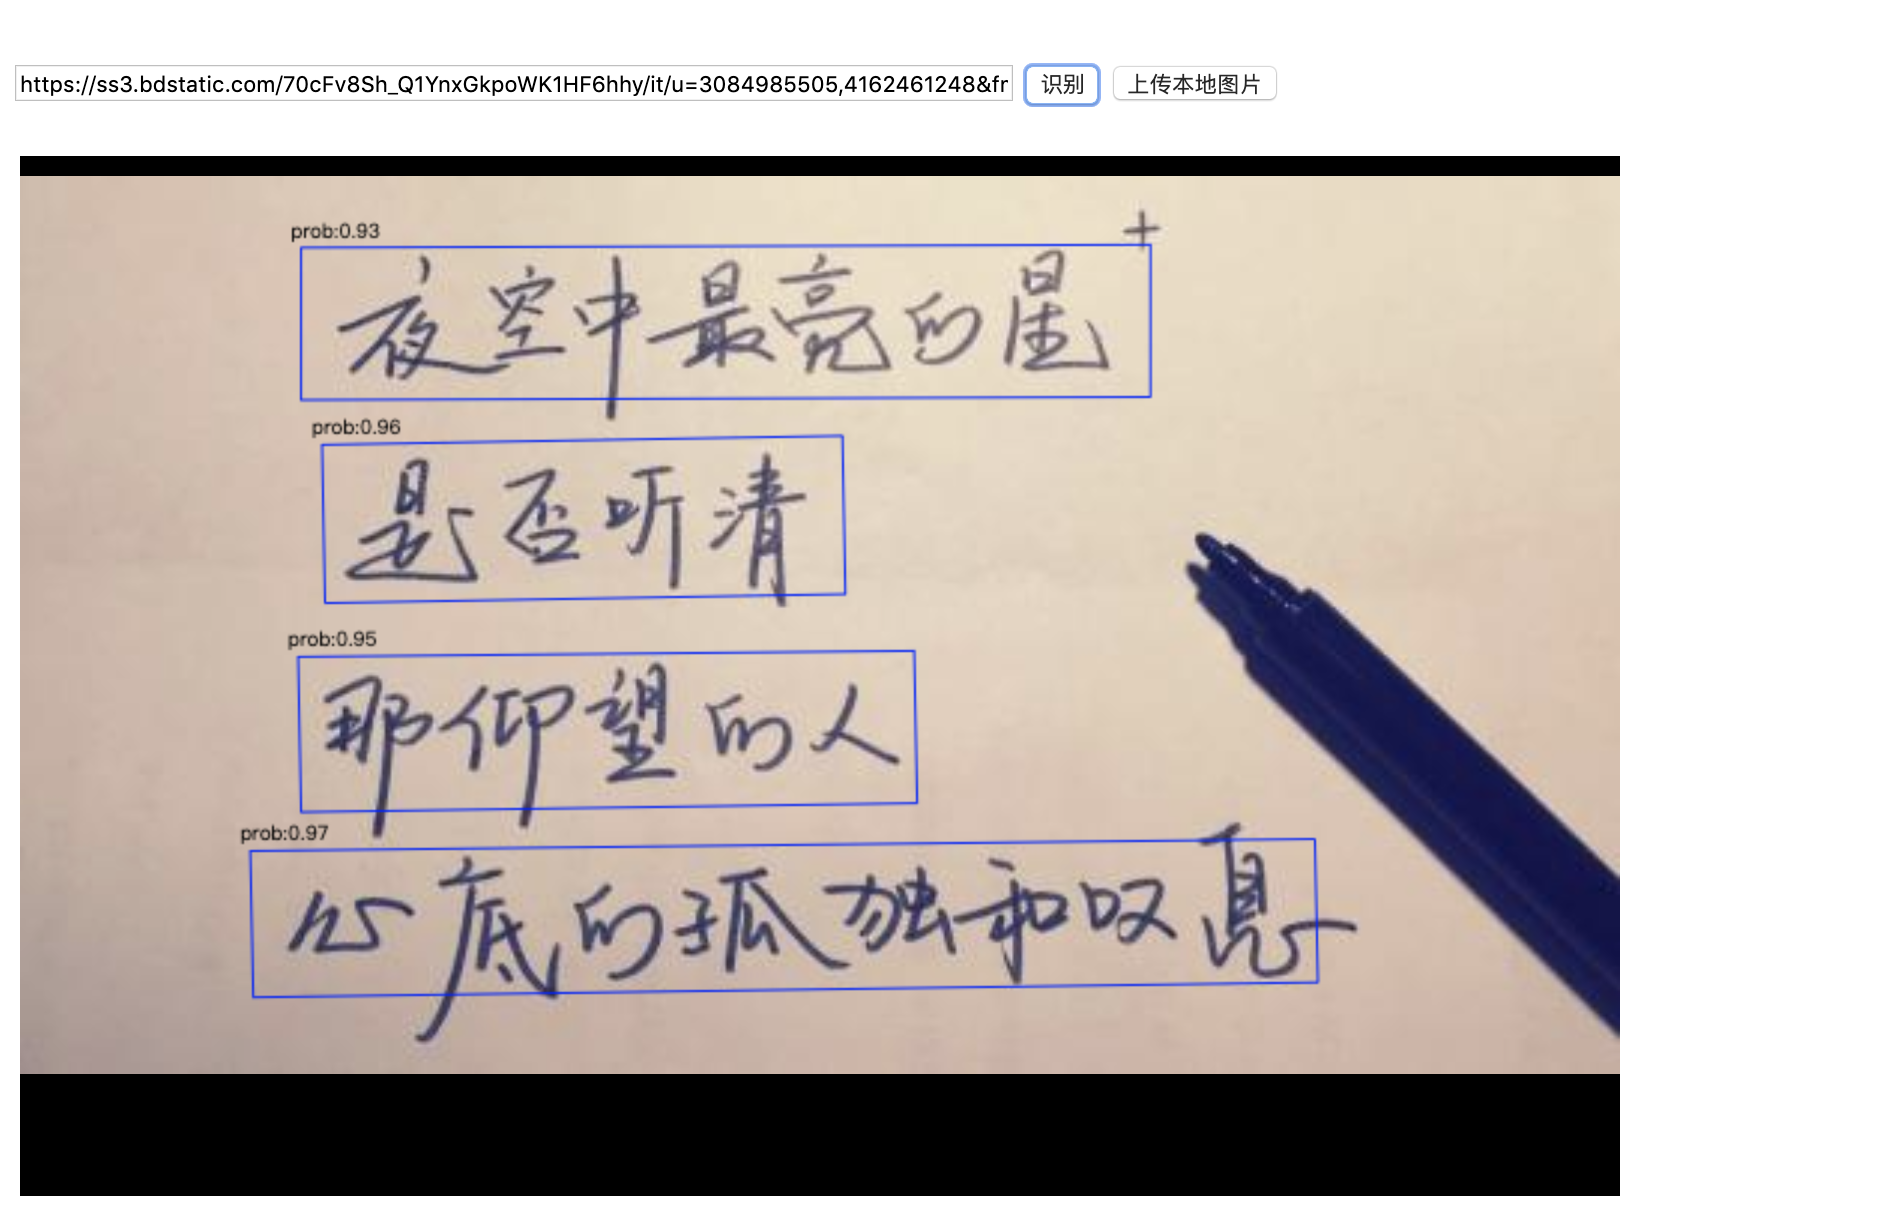 https://ss3.bdstatic.com/70cFv8Sh_Q1YnxGkpoWK1HF6hhy/it/u=3084985505,4162461248&fr 识别 上传本地图片
prob:0.93
夜空中最亮的星
prob:0.96
是否听清
prob:0.95
那仰望的人
prob:0.97
心底的孤独和叹息